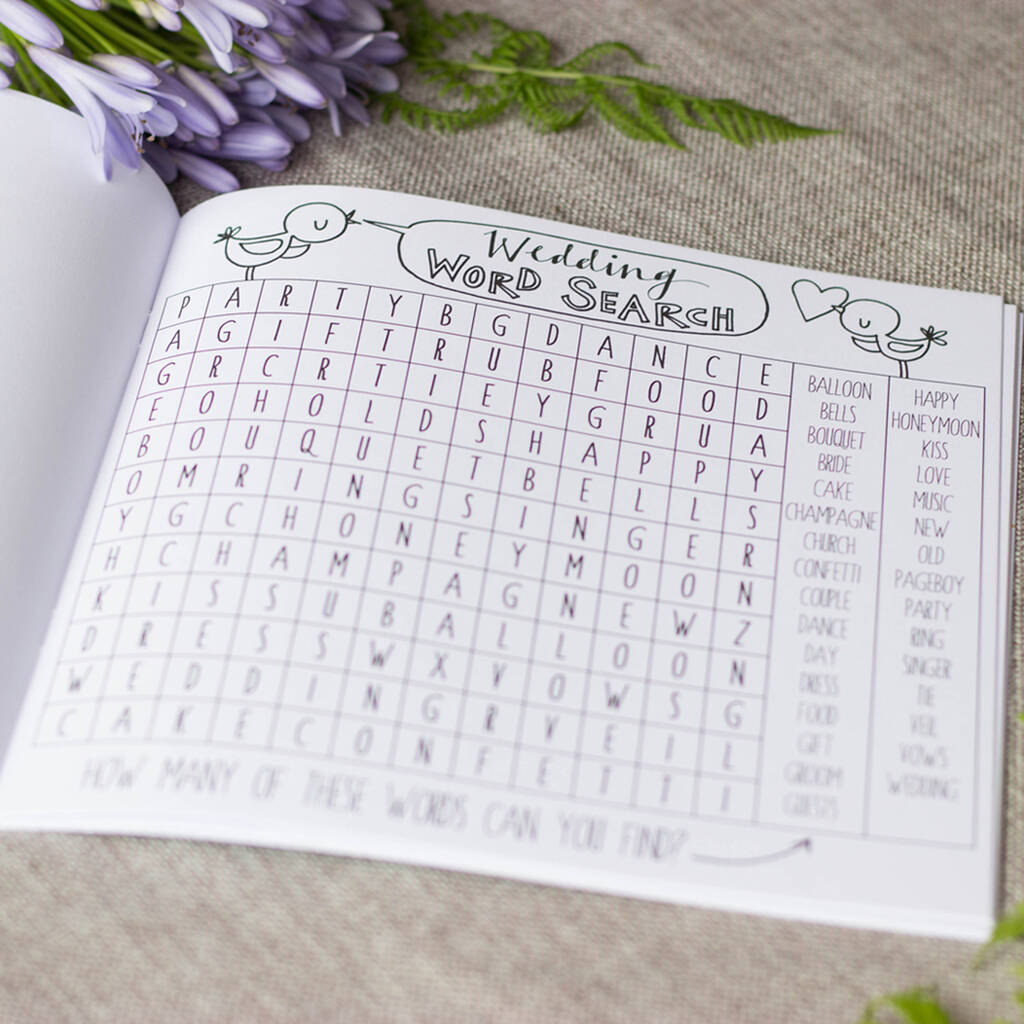 Wedding
WORD SEARCH
P A R T Y B G D A N C E
A G I F T R U B F O O D
G R C R T I E Y G R U A
E O H O L D S H A P P Y
B O U Q U E T B E L L S
O M R I N G S I N G E R
Y G C H O N E Y M O O N
H C H A M P A G N E W Z
K I S S U B A L L O O N
D R E S S W X V O W S G
W E D D I N G R V E I L
C A K E C O N F E T T I
BALLOON
BELLS
BOUQUET
BRIDE
CAKE
CHAMPAGNE
CHURCH
CONFETTI
COUPLE
DANCE
DAY
DRESS
FOOD
GIFT
GROOM
GUESTS
HAPPY
HONEYMOON
KISS
LOVE
MUSIC
NEW
OLD
PAGEBOY
PARTY
RING
SINGER
TIE
VEIL
VOWS
WEDDING
HOW MANY OF THESE WORDS CAN YOU FIND?